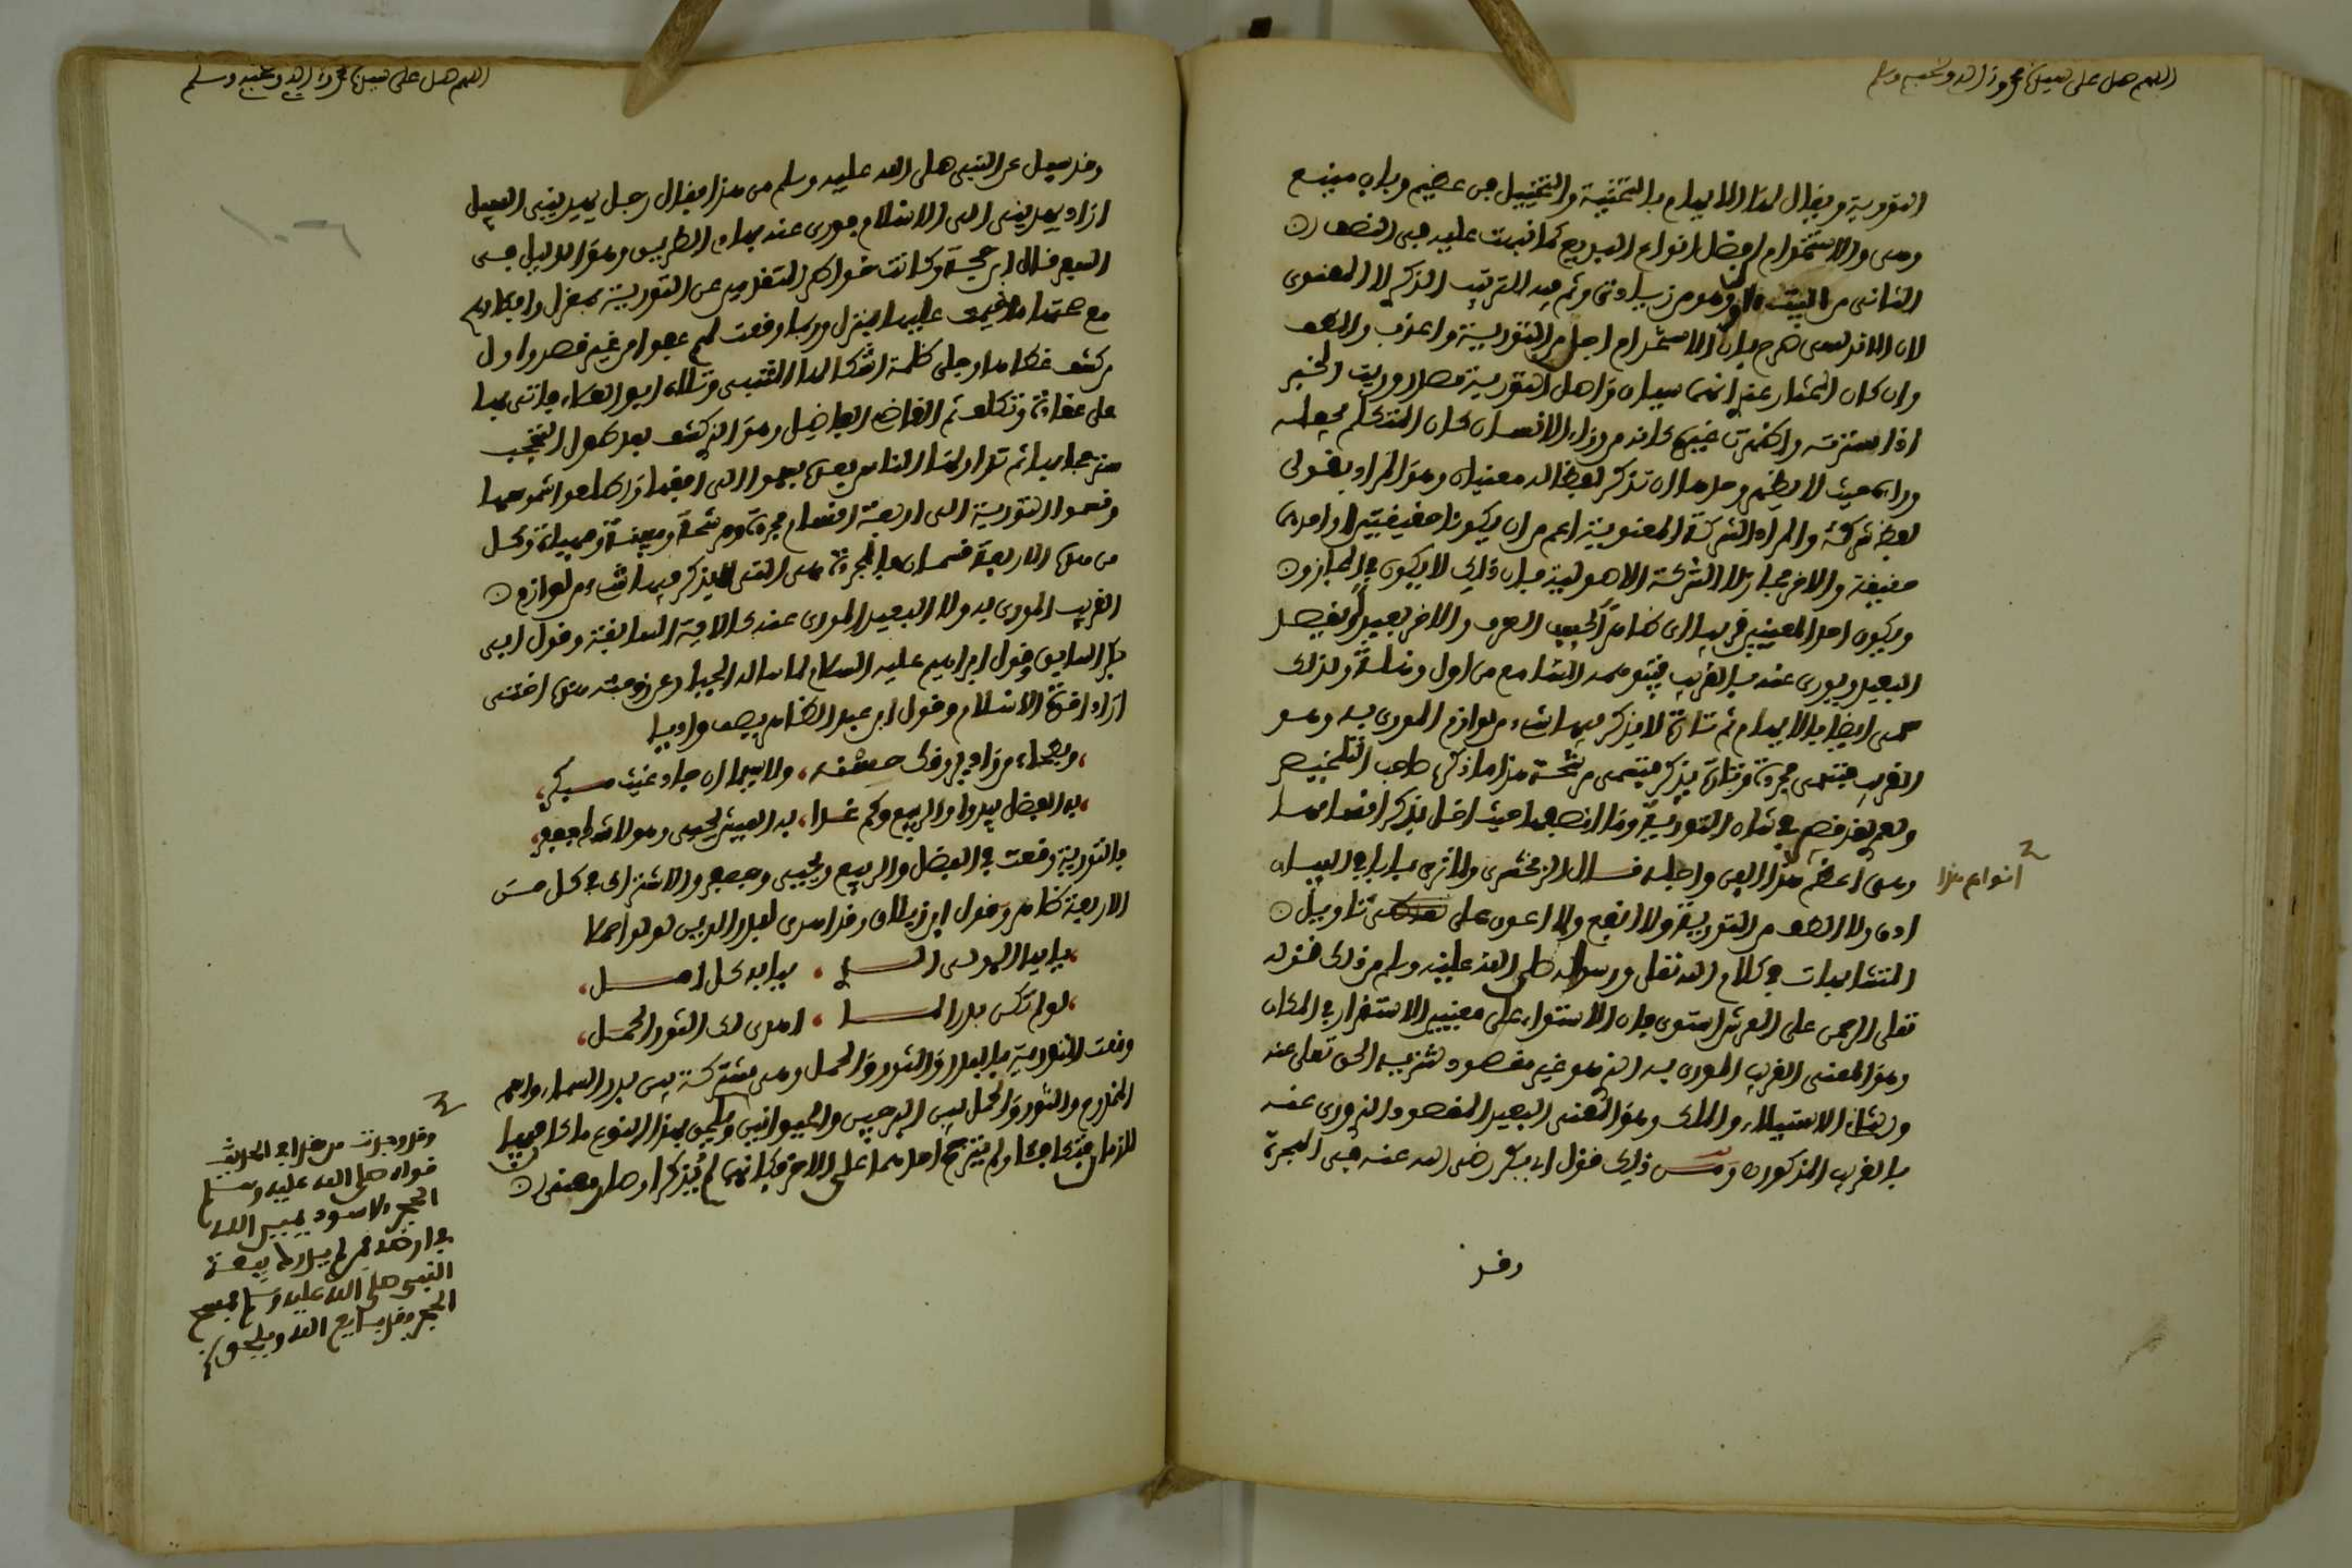 اللهم صل على سيدنا محمد وءاله وصحبه وسلم
التورية ويقال لها الايهام والتخييل هي عظيم وباب متسع
وهي والاستخدام افضل انواع البديع كما نبهت عليه في النصف
الثاني من البيت وهو من زيادتي وثم فيه للترتيب الذكري لا المعنوي
لان الاندلسي صرح بان الاستخدام اجل من التورية واعذب والطف
وان كان المختار عنه انهما سيان واصل التورية مصدر وريت الخبر
اذا سترته واظهرت غيره كانه من وراء الانسان كان المتكلم يجعله
وراءه حيث لا يظهر وحدها ان تذكر لفظا له معنيان وهو المراد بقولي
لفظ شركة والمراد الشركة المعنوية اعم من ان يكونا حقيقيين او احدهما
حقيقة والاخر مجازا لا الشركة الاصولية فان ذلك لا يكون في المجاز
ويكون احد المعنيين قريبا اي ظاهرا بحسب العرف والاخر بعيد فيقصد
البعيد ويورى عنه بالقريب فيتوهمه السامع من اول وهلة ولذلك
سمى ايضا بالايهام ثم تارة لا يذكر فيها شيء من لوازم المورى به وهو
القريب فتسمى مجردة وتارة يذكر فتسمى مرشحة هذا ما ذكره صاحب التلخيص
ولعمري لقد قصر في شان التورية وما انصفها حيث اخل بذكر اقسامها
وهي اعظم هذا الفن واجله قال الزمخشري ولا ترى بابا في البيان
انواع هذا
ادق ولا الطف من التورية ولا انفع ولا اعون على تاويل
المتشابهات في كلام الله تعلى ورسوله صلى الله عليه وسلم من ذلك قوله
تعلى الرحمن على العرش استوى فان الاستواء على معنيين الاستقرار في المكان
وهو المعنى القريب المورى به الذي هو غير مقصود لتنزيه الحق تعلى عنه
والثاني الاستيلاء والملك وهو المعنى البعيد المقصود الذي ورى عنه
بالقريب المذكور ومن ذلك قول ابي بكر رضي الله عنه في الهجرة
وقد
اللهم صل على سيدنا محمد وءاله وصحبه وسلم
وقد سيل عن النبي صلى الله عليه وسلم من هذا فقال رجل يهديني السبيل
اراد يهديني الى الاسلام فورى عنه بهادي الطريق وهو الدليل في
السفر قال ابن حجة وكانت خواطر المتقدمين عن التورية بمعزل وافكارهم
مع صحتها ما خيمت عليها بمنزل وربما وقعت لهم عفوا من غير قصد واول
من كشف غطاءها وجلى ظلمة اشكالها المتنبي وتلاه ابو العلاء فاتى بها
على عقادة وتكلف ثم القاضي الفاضل وهو الذي كشف بعد طول التحجب
ستر حجابها ثم تداولها الناس بعده فسموا الى افقها واطلعوا شموسها
وقسموا التورية الى اربعة اقسام مجردة ومرشحة ومبينة ومهياة وكل
من هذه الاربعة قسمان فالمجردة هي التي لم يذكر فيها شيء من لوازم
القريب المورى به ولا البعيد المورى عنه كالاية السابقة وقول ابي
بكر السابق وقول ابراهيم عليه السلام لما ساله الجبار عن زوجته هذه اختي
اراد اخوة الاسلام وقول ابن عبد الظاهر يصف واديا
وبطحاء من واد يروقك حسنه، ولا سيما ان جاد غيث مبكر،
به الفضل يبدو والربيع وكم غدا، به العيش يحيى وهو لا شك جعفر،
فالتورية وقعت في الفضل والربيع ويحيى وجعفر والاشتراك في كل من
الاربعة ظاهر وقول ابن زيلاق وقد اهدى لبدر الدين لولو احملا
يا ايها المولى الذي، بيابه كل امل،
لو لم تكن بدر السما، اهدى لك الثور الحمل،
وقعت التورية بالبدر والثور والحمل وهي مشتركة بين بدر السماء واسم
المخدوم والثور والحمل بين البرجين والحيوانين ويلحق بهذا النوع ما كافيها
اللازمان فتكافئا ولم يترجح احدهما على الاخر فكانهما لم يذكرا وصار معنى
وقد وجدت من هذا في الحديث
قوله صلى الله عليه وسلم
الحجر الاسود يمين الله
في ارضه فمن لم يدرك بيعة
النبي صلى الله عليه وسلم فمسح
الحجر فقد بايع الله